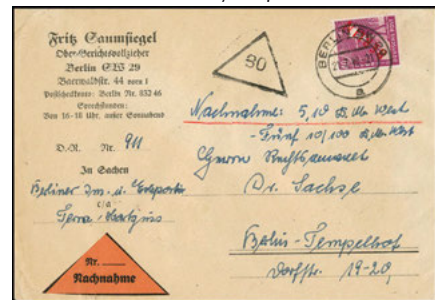 Fritz Saumsiegel
Ober-Gerichtsvollzieher
Berlin SW 29
Baerwaldstr. 44 vorn I
Postscheckkonto: Berlin Nr. 832 46
Sprechstunden:
Von 16-18 Uhr, außer Sonnabend
D.-R. Nr. 911
In Sachen
Berliner Im- u. Exportu
c/a
80
BERLIN SW
a
Nachnahme: 5,10 D.M. West
- Fünf 10/100 D.M. West
Herrn Rechtsanwalt
Dr. Sachse
Berlin-Tempelhof
Dorfstr. 19-20
Nr.
Nachnahme